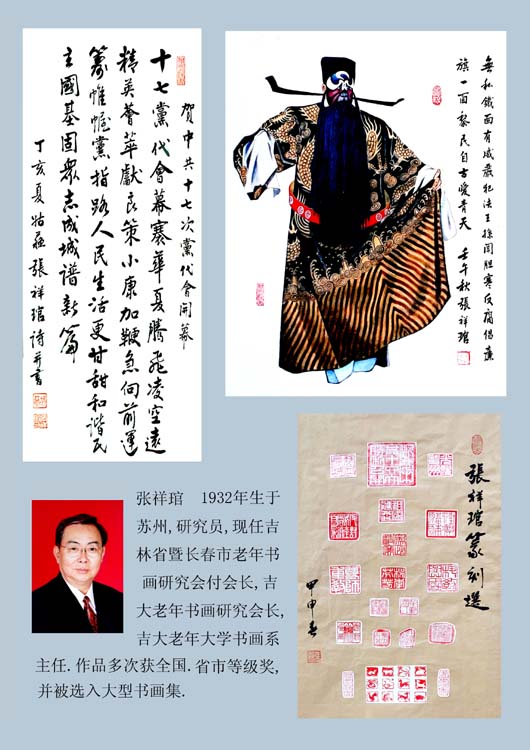 賀中共十七次黨代會開幕
十七黨代會幕搴華夏騰飛凌空遠
精英薈萃獻良策小康加鞭急向前運
籌帷幄黨指路人民生活更甘甜和諧民
主國基固眾志成城譜新篇
丁亥夏姑蘇張祥琯詩并書
無私鐵面有威嚴犯法王孫聞胆寒反腐倡廉
旗一面黎民自古愛青天 壬午秋張祥琯
張祥琯篆刻選
甲申春
张祥琯 1932年生于
苏州,研究员,现任吉
林省暨长春市老年书
画研究会付会长,吉
大老年书画研究会长,
吉大老年大学书画系
主任.作品多次获全国.省市等级奖,
并被选入大型书画集.